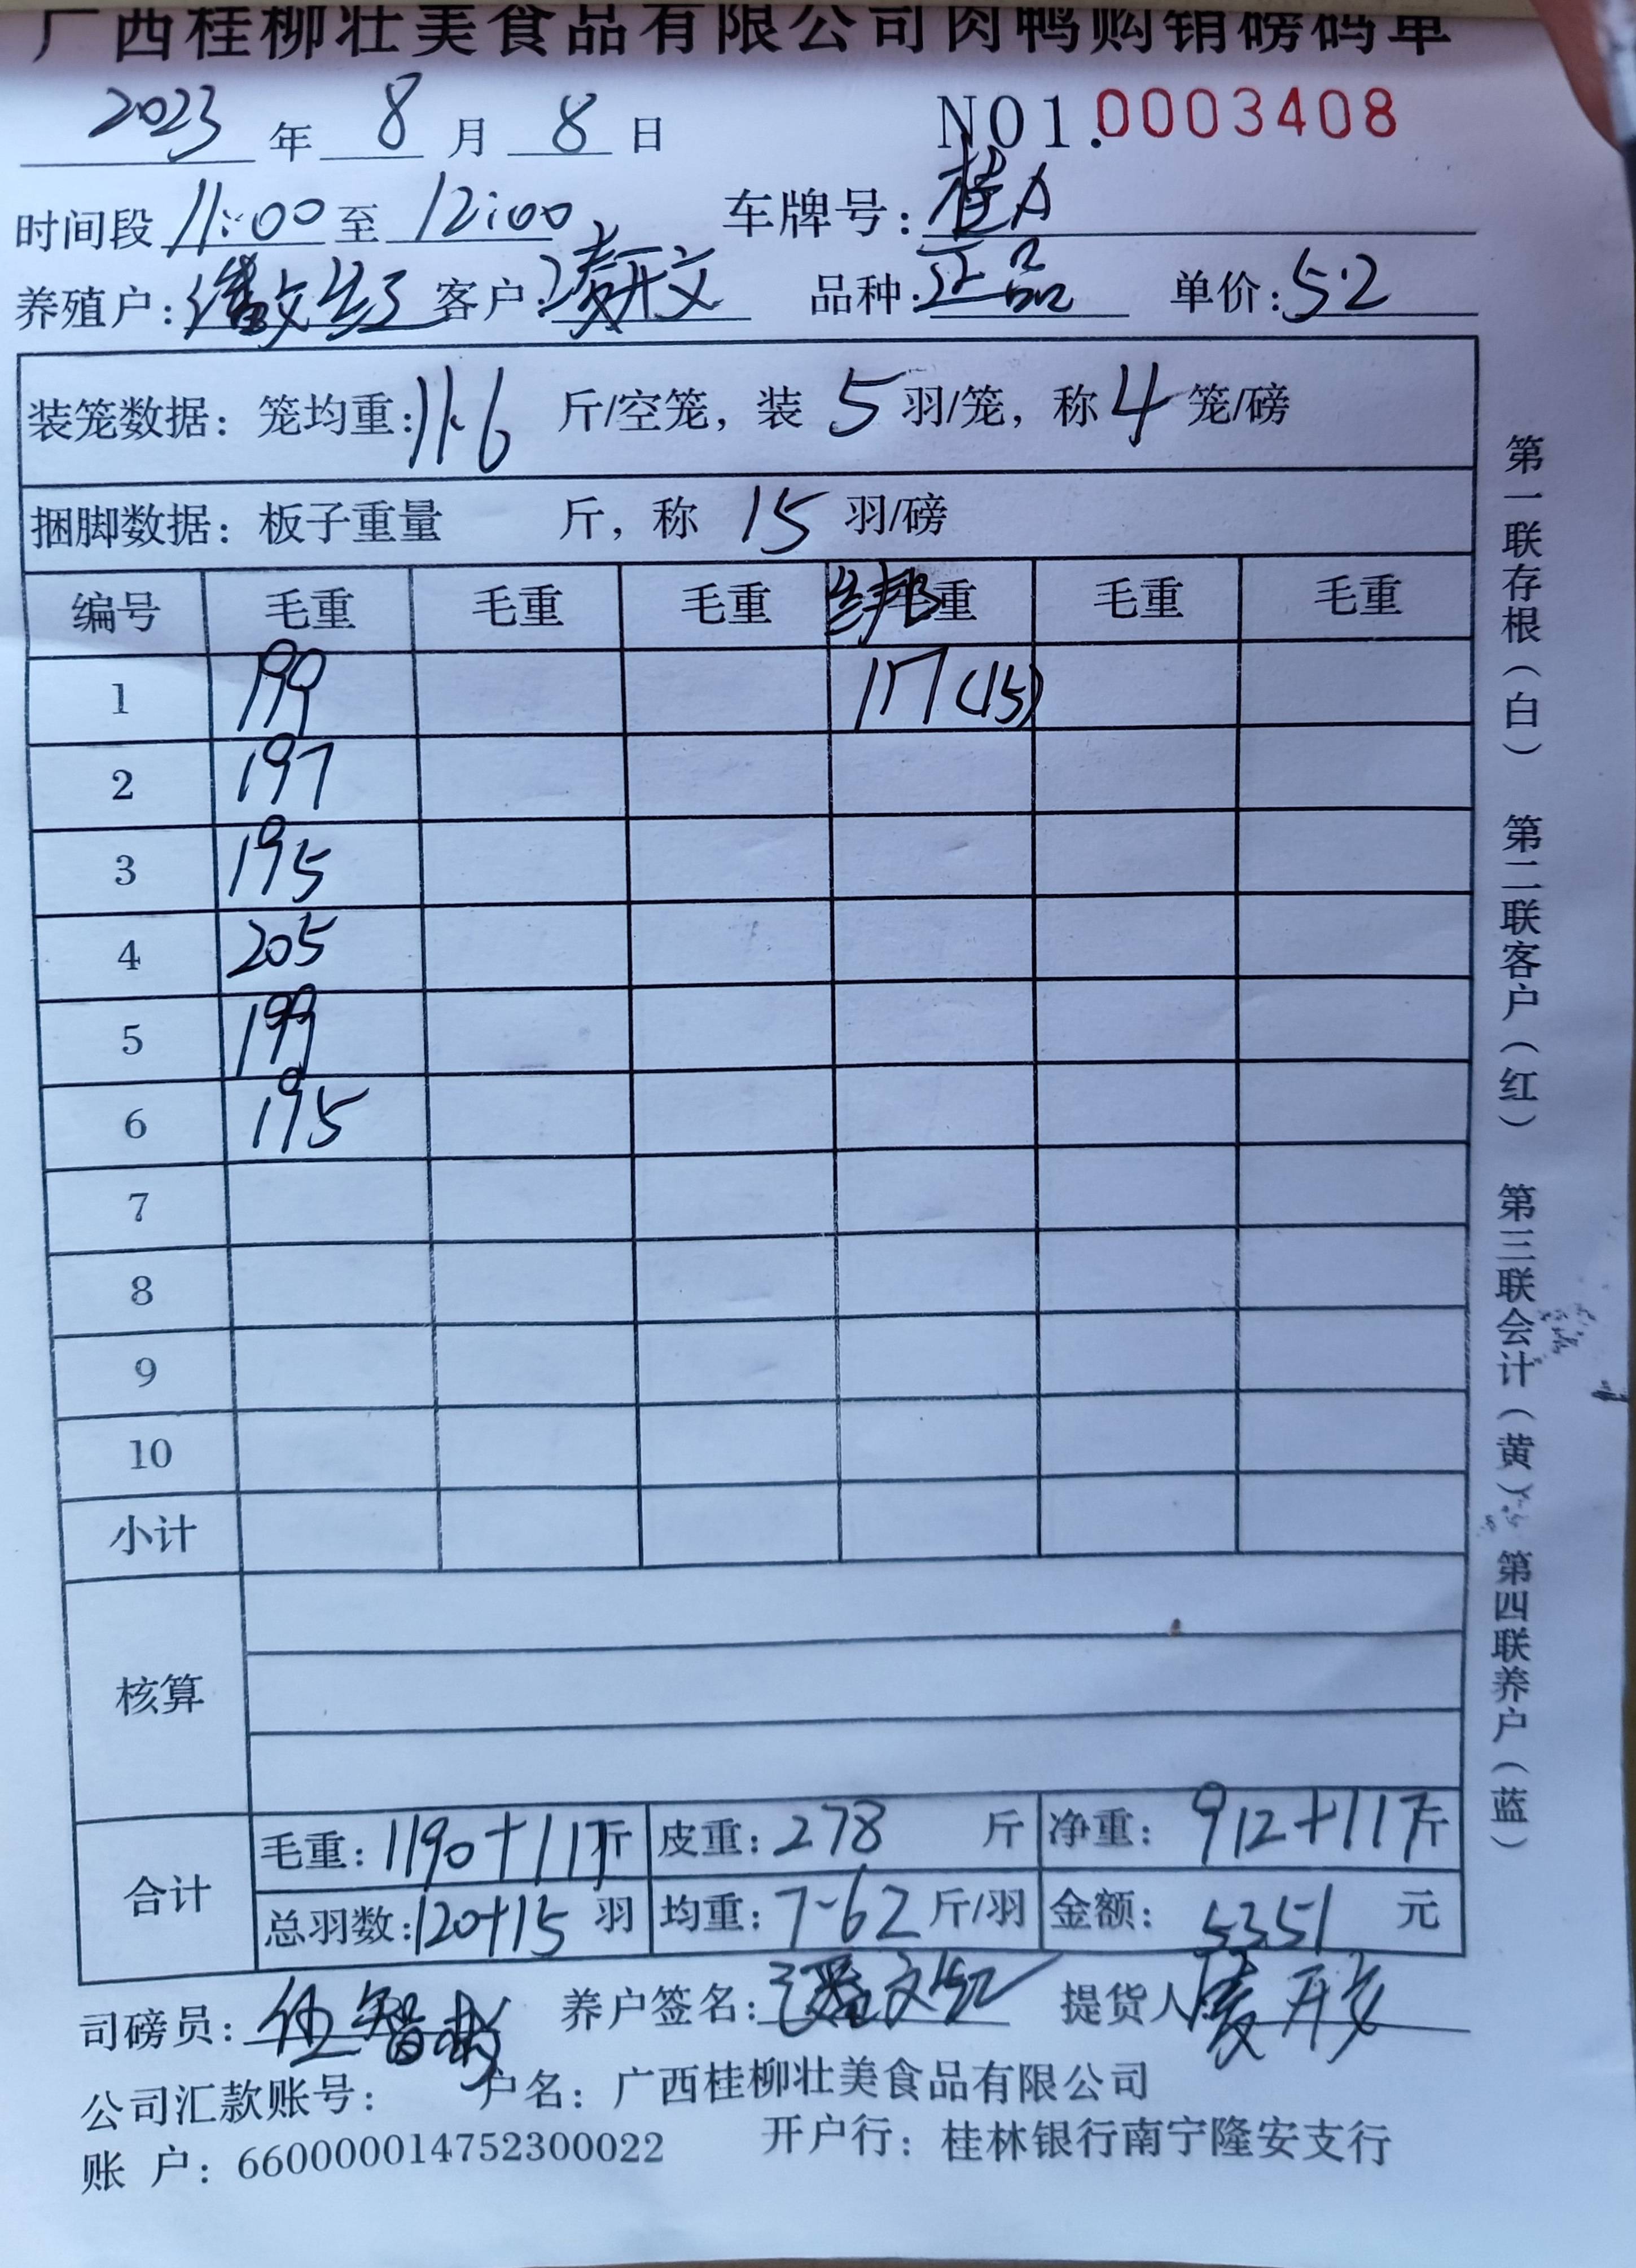 广西桂柳壮美食品有限公司肉鸭购销磅码单
2023 年 8 月 8 日 NO1.0003408
时间段 11:00 至 12:00 车牌号: 桂A
养殖户: 潘文红 客户: 凌开文 品种: 正品 单价: 5.2
装笼数据: 笼均重: 11.6 斤/空笼, 装 5 羽/笼, 称 4 笼/磅
捆脚数据: 板子重量 斤, 称 15 羽/磅
编号 毛重 毛重 毛重 毛重 毛重 毛重
1 199 117 (15)
2 197
3 195
4 205
5 199
6 195
7
8
9
10
小计
核算
合计 毛重: 1190+117斤 皮重: 278 斤 净重: 912+117斤
总羽数: 120+15 羽 均重: 7.62 斤/羽 金额: 5351 元
司磅员: 养户签名: 潘文红 提货人 凌开文
公司汇款账号: 户名: 广西桂柳壮美食品有限公司
账 户: 660000014752300022 开户行: 桂林银行南宁隆安支行
第一联存根(白) 第二联客户(红) 第三联会计(黄) 第四联养户(蓝)